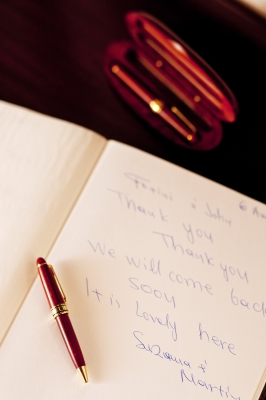 & John 6 A
Thank you
Thank you
We will come back
soon
It is lovely here
Suzanna &
Martin